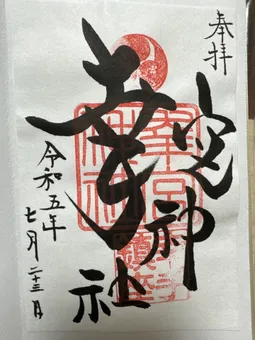 奉拝
幸宮神社
令和五年
七月二十三日